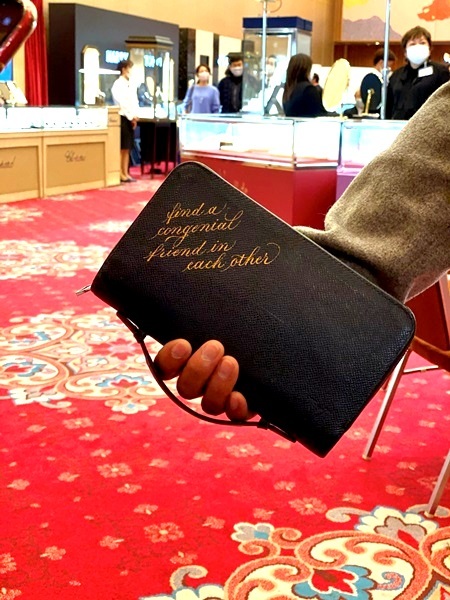 find a
congenial
friend in
each other
Chopard